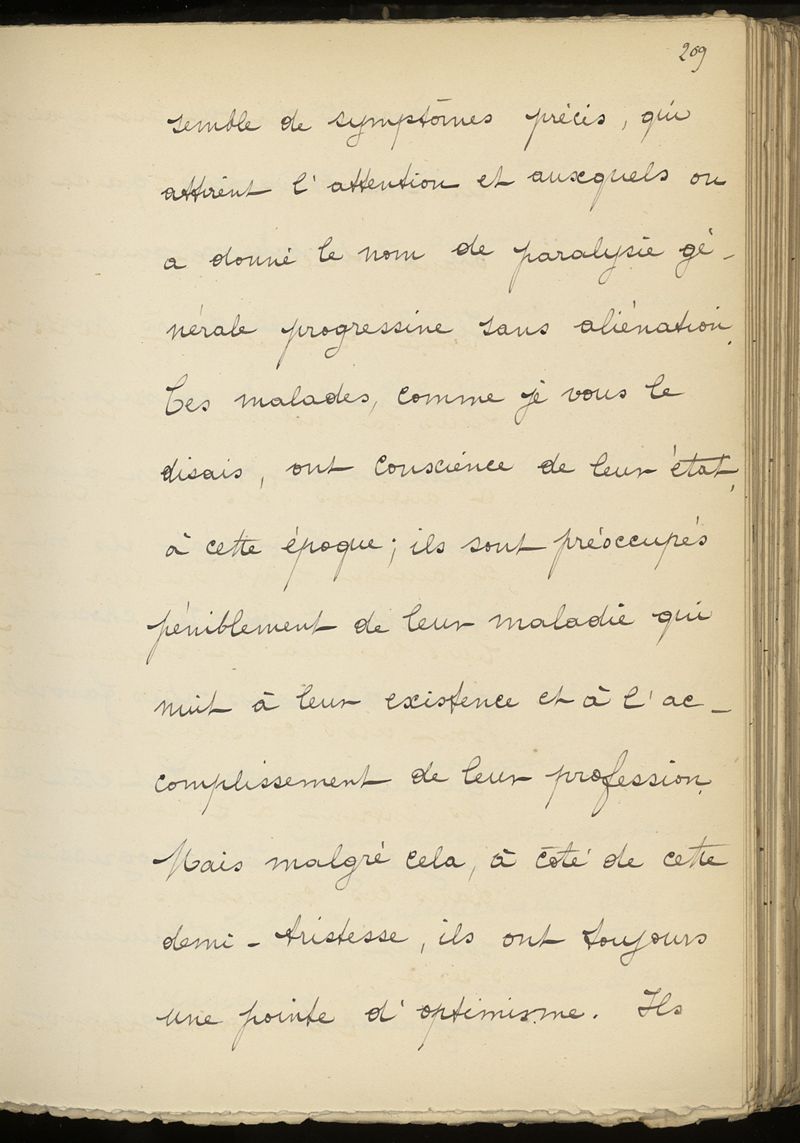 209
semble de symptômes précis, qui
attirent l'attention et auxquels on
a donné le nom de paralysie gé-
nérale progressive sans aliénation.
Ces malades, comme je vous le
disais, ont conscience de leur état,
à cette époque; ils sont préoccupés
péniblement de leur maladie qui
nuit à leur existence et à l'ac-
complissement de leur profession.
Mais malgré cela, à côté de cette
demi-tristesse, ils ont toujours
une pointe d'optimisme. Ils